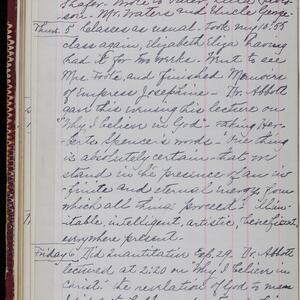 Shafer. Wrote to
son - Mr. Waters and
Thurs. 5 Classes as usual. Took my 10:55
class again, Elizabeth Eliza having
had it for two weeks. Went to see
Mrs. Foote, and finished Memoirs
of Empress Josephine - Dr. Abbott
gave this evening his lecture on
"Why I believe in God" - taking Her-
bert Spencer's words - "One thing
is absolutely certain - that we
stand in the presence of an in-
finite and eternal energy from
which all things proceed". Illim-
itable, intelligent, artistic, beneficent,
everywhere present.
Friday 6 Did in quantitative Expt. 29. Dr. Abbott
lectured at 2:20 on "Why I believe in
Christ" the revelation of God to man